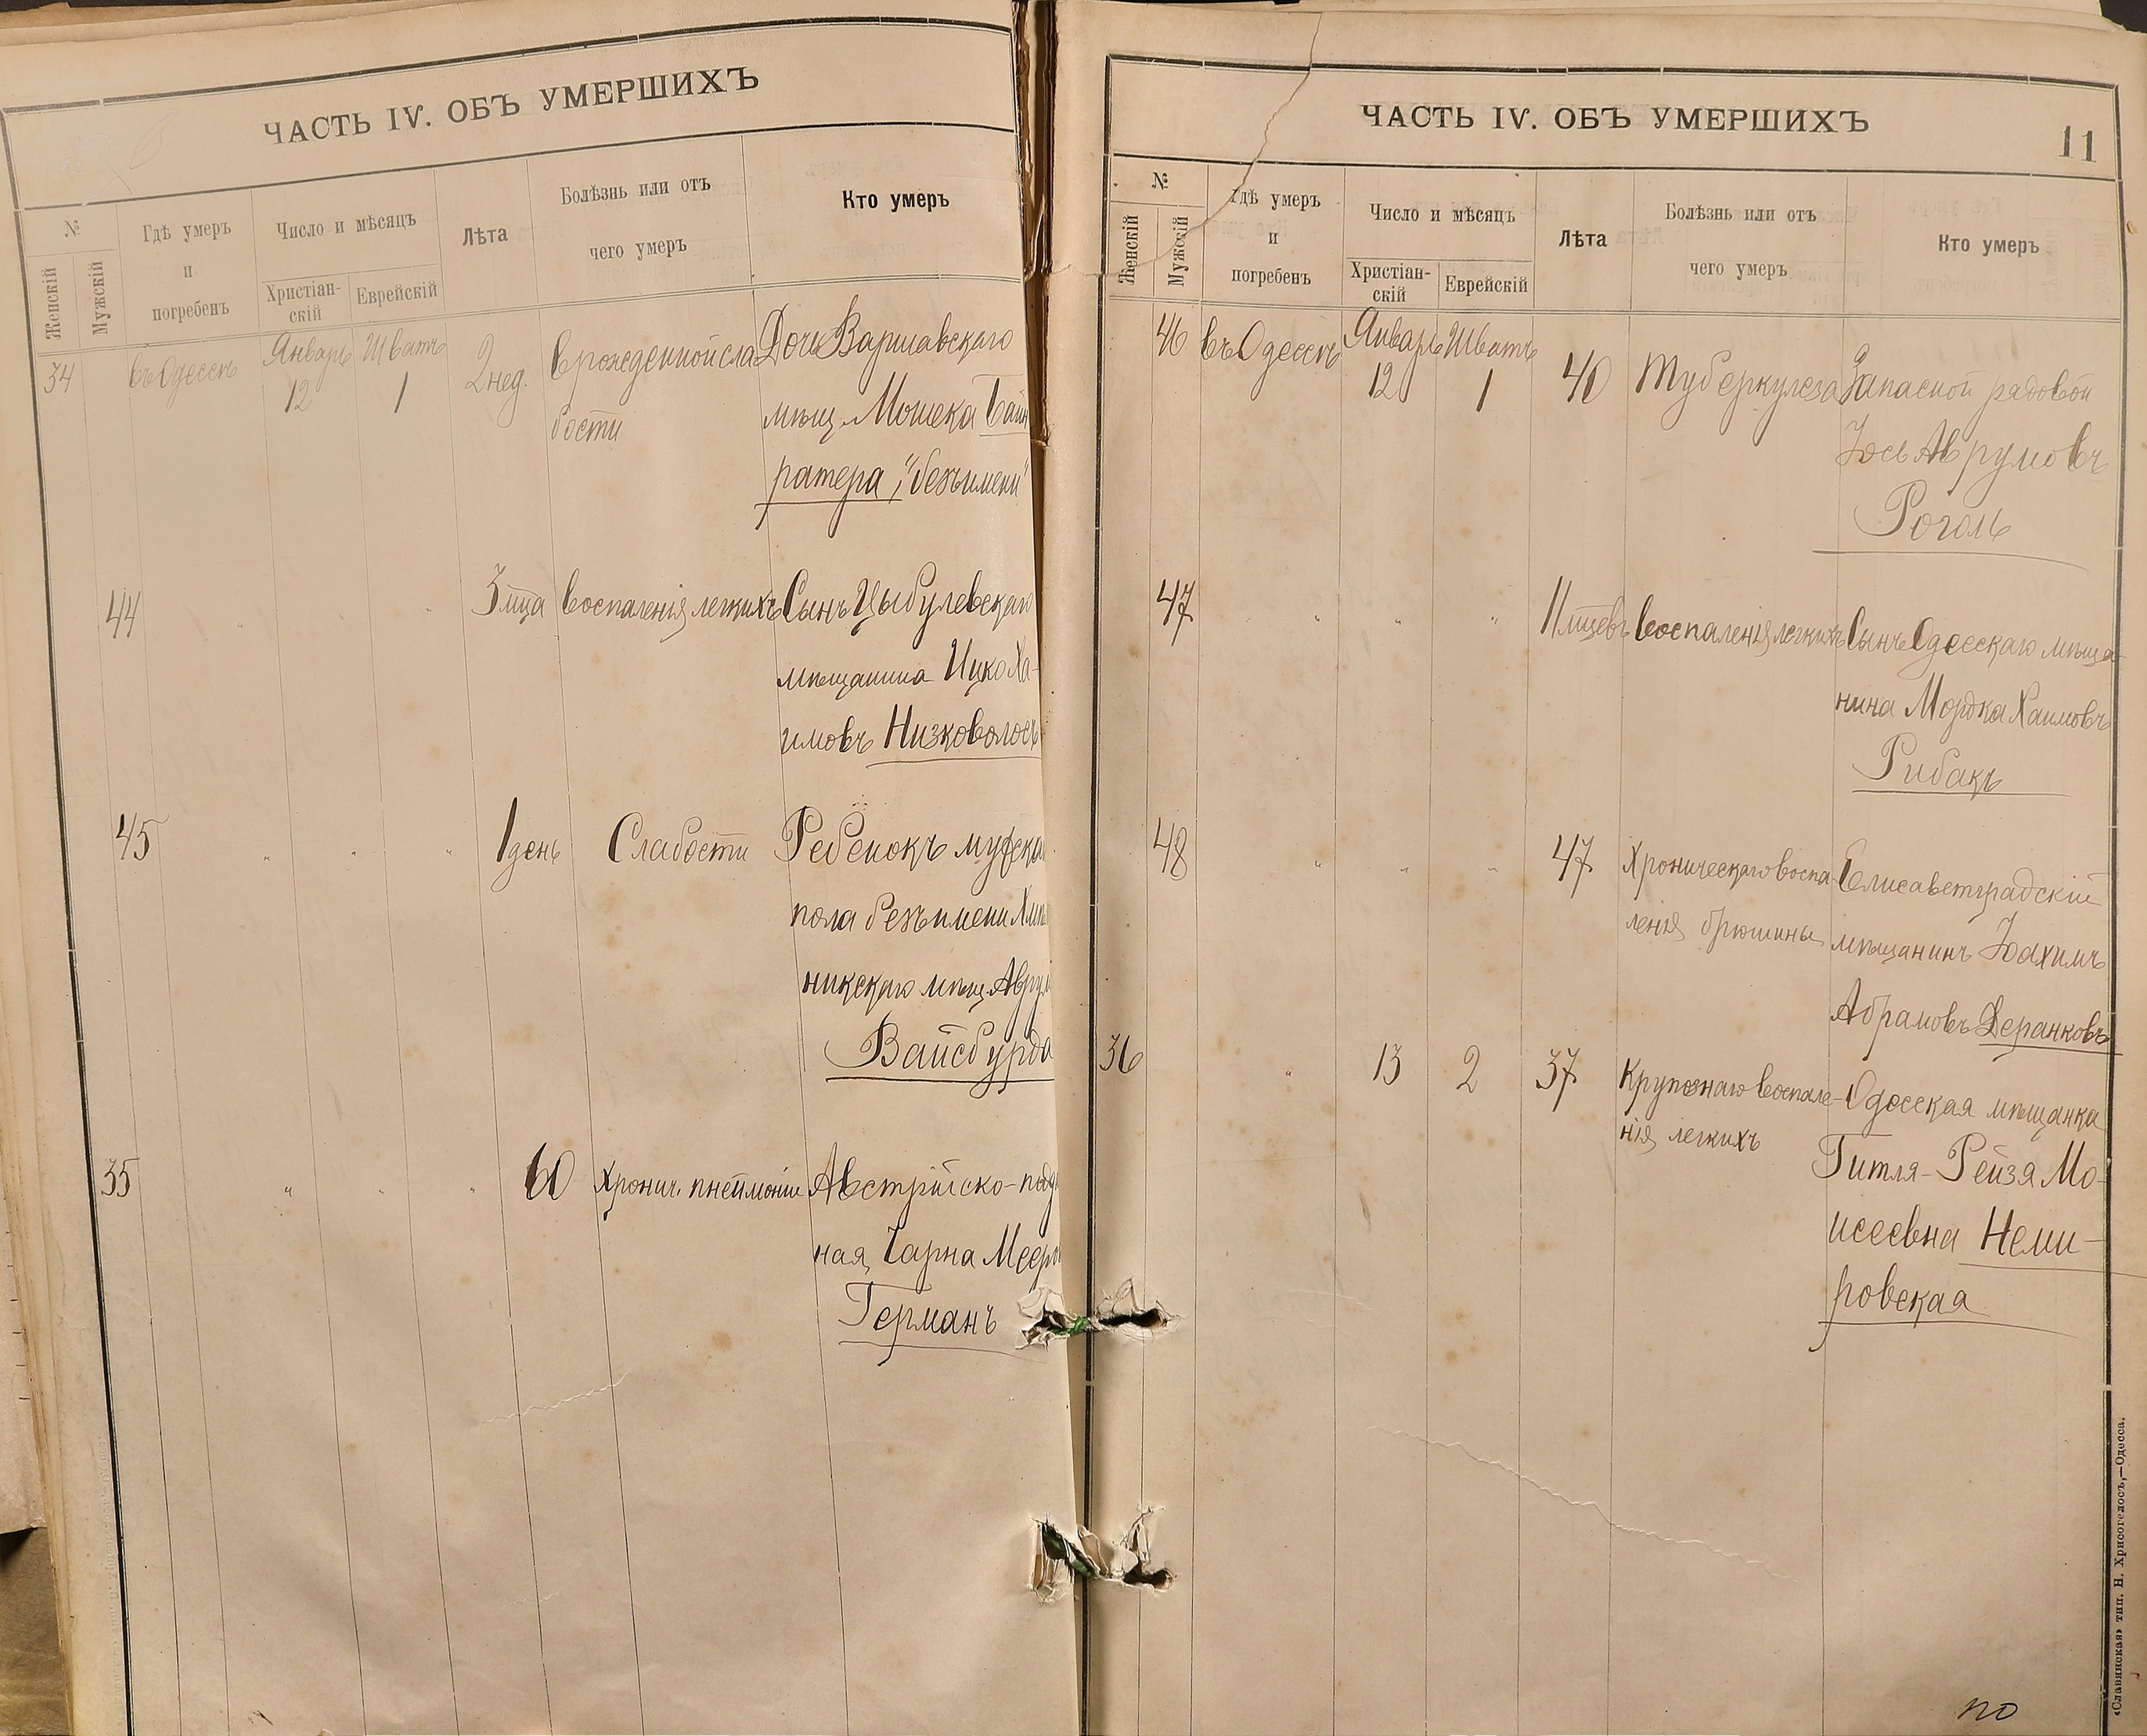 ЧАСТЬ IV. ОБЪ УМЕРШИХЪ
№
Женскій
Мужскій
Гдѣ умеръ
и
погребенъ
Число и мѣсяцъ
Христіан-
скій
Еврейскій
Лѣта
Болѣзнь или отъ
чего умеръ
Кто умеръ
34
въ Одессѣ
Январь
12
Шватъ
1
2 нед.
Врожденной сла
бости
Дочь Варшавскаго
мѣщ. Мошека
ратера, "безъ имени"
44
"
"
"
3 мца
Воспаленія легкихъ
Сынъ Цыбулевскаго
мѣщанина Ицко Ха-
имовъ Низковолосъ
45
"
"
"
1 день
Слабости
Ребенокъ мужска
пола безъ имени Хмѣ
никскаго мѣщ. Аврум
Вайсбурда
35
"
"
"
60
Хронич. пнеймоніи
Австрійско-подд
ная Чарна Меер
Германъ
ЧАСТЬ IV. ОБЪ УМЕРШИХЪ
11
№
Женскій
Мужскій
Гдѣ умеръ
и
погребенъ
Число и мѣсяцъ
Христіан-
скій
Еврейскій
Лѣта
Болѣзнь или отъ
чего умеръ
Кто умеръ
46
въ Одессѣ
Январь
12
Шватъ
1
40
Туберкулеза
Запасной рядовой
Іось Аврумовъ
Роголь
47
"
"
"
11 мцевъ
Воспаленія легкихъ
Сынъ Одесскаго мѣща-
нина Мордка Хаимовъ
Рибакъ
48
"
"
"
47
Хроническаго воспа
ленія брюшины
Елисаветградскій
мѣщанинъ Іоахимъ
Абрамовъ Деранковъ
36
"
13
2
37
Крупознаго воспале-
нія легкихъ
Одесская мѣщанка
Гитля-Рейзя Мо-
исеевна Неми-
ровская
по
«Славянская» тип. Н. Хрисогелосъ,—Одесса.